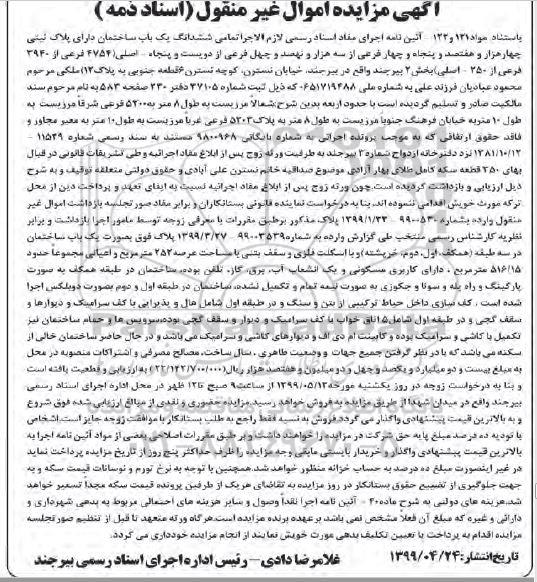 آگهی مزایده اموال غیر منقول (اسناد ذمه)
باستناد مواد۱۲۱و۱۲۲ - آئین نامه اجرای مفاد اسناد رسمی لازم الاجرا تمامی ششدانگ یک باب ساختمان دارای پلاک ثبتی
چهار هزار و هفتصد و پنجاه و چهار فرعی از سه هزار و نهصد و چهل فرعی از دویست و پنجاه - اصلی(۴۷۵۴ فرعی از ۳۹۴۰
فرعی از ۲۵۰ - اصلی)بخش۲ بیرجند واقع در بیرجند، خیابان نسترن، کوچه نسترن۶قطعه جنوبی به پلاک۱۳)ملکی مرحوم
محمود عبادیان فرزند علی به شماره ملی ۰۶۵۱۷۱۹۴۸۸ که ذیل ثبت شماره ۳۷۱۰۵ دفتر ۲۳۰ صفحه ۵۸۳ به نام مرحوم سند
مالکیت صادر و تسلیم گردیده است با حدود اربعه بدین شرح:شمالا مرزیست به طول ۸ متر به۵۲۰۰ فرعی شرقا مرزیست به
طول ۱۰ متر به خیابان فرهنگ جنوبا مرزیست به طول۸ متر به پلاک۵۲۰۳ فرعی غربا مرزیست به طول۱۰ متر به معبر مجاور و
فاقد حقوق ارتفاقی که به موجب پرونده اجرائی به شماره بایگانی ۹۸۰۰۹۶۸ مستند به سند رسمی شماره ۱۱۵۴۹ -
۱۳۸۱/۱۰/۱۲ نزد دفترخانه ازدواج شماره۳ بیرجند به طرفیت ورثه زوج پس از ابلاغ مفاد اجرائیه و طی تشریفات قانونی در قبال
بهای ۲۵۰ قطعه سکه کامل طلای بهار آزادی موضوع صداقیه خانم نسترن علی آبادی و حقوق دولتی متعلقه توقیف و به شرح
ذیل ارزیابی و بازداشت گردیده است.چون ورثه زوج پس از ابلاغ مفاد اجرائیه نسبت به ایفای تعهد و پرداخت دین از محل
ترکه مورث خویش اقدامی ننموده اند، بنا به درخواست نماینده قانونی بستانکاران و برابر مفاد صورتجلسه بازداشت اموال غیر
منقول وارده بشماره ۹۹۰۰۵۳۰ - ۱۳۹۹/۱/۳۳ پلاک مذکور برطبق مقررات با معرفی زوجه توسط مامور اجرا بازداشت و برابر
نظریه کارشناس رسمی منتخب طی گزارش وارده به شماره۹۹۰۰۳۵۳۹ - ۱۳۹۹/۳/۲۷ پلاک فوق بصورت یک باب ساختمان
در سه طبقه (همکف، اول، دوم، خرپشته)و با اسکلت فلزی و سقف بتنی با مساحت عرصه ۲۵۲ مترمربع و اعیانی مجموعا حدود
۵۱۶/۱۵ مترمربع ، دارای کاربری مسکونی و یک انشعاب آب، برق، گاز، تلفن بوده، ساختمان در طبقه همکف به صورت
پارکینگ و راه پله و سونا و جکوزی به صورت نیمه تمام و تکمیل نشده، ساختمان در طبقه اول و دوم بصورت دوبلکس اجرا
شده است ، کف سازی داخل حیاط ترکیبی از بتن و سنگ و در طبقه اول شامل هال و پذیرایی با کف سرامیک و دیوارها و
سقف گچی و در طبقه اول شامل۵اتاق خواب با کف سرامیک و دیوار و سقف گچی بوده،سرویس ها و حمام ساختمان نیز
تکمیل با کاشی و سرامیک بوده و کابینت ام دی اف و دیوارهای کاشی و سرامیک می باشد و در حال حاضر ساختمان خالی از
سکنه می باشد که با در نظر گرفتن جمیع جهات و وضعیت ظاهری ، سال ساخت، مصالح مصرفی و اشتراکات منصوبه در محل
به مبلغ بیست و دو میلیارد و یکصد و چهل و دو میلیون و هفتصد هزار ریال(۲۲/۱۴۲/۷۰۰/۰۰۰) به ارزیابی و قطعیت یافته است
و بنا به درخواست زوجه در روز یکشنبه مورخه۱۳۹۹/۰۵/۱۲ از ساعت۹ صبح تا۱۲ ظهر در محل اداره اجرای اسناد رسمی
بیرجند واقع در میدان شهدا از طریق مزایده به فروش خواهد رسید.مزایده حضوری و نقدی از مبالغ ارزیابی شده فوق شروع
و به بالاترین قیمت پیشنهادی واگذار می گردد فروش به نسیه فقط راجع به طلب بستانکار با موافقت زوجه جایز است.اشخاص
با تودیعه ده درصد مبلغ پایه حق شرکت در مزایده را خواهند داشت و بر طبق مقررات اصلاحی بعضی از مواد آئین نامه اجرا به
بالاترین قیمت پیشنهادی واگذار و خریدار بایستی مابقی وجه مزایده را ظرف حداکثر پنج روز از تاریخ مزایده پرداخت نماید
در غیر اینصورت مبلغ ده درصد به حساب خزانه منظور خواهد شد.همچنین با توجه به نرخ تورم و نوسانات قیمت سکه و به
جهت جلوگیری از تضییع حقوق بستانکار در روز مزایده به تقاضای هریک از طرفین پرونده قیمت سکه مجددا تسعیر خواهد
شد.هزینه های دولتی به شرح ماده۴۰ - آئین نامه اجرا نقدا وصول و سایر هزینه های احتمالی مربوط به بدهی شهرداری و
دارائی و غیره که مبلغ آن فعلا مشخص نمی باشد، بر عهده برنده مزایده است.هرگاه ورثه متعهد تا قبل از تنظیم صورتجلسه
مزایده اقدام به پرداخت یا تعیین تکلیف بدهی مورث خویش نمایند از انجام مزایده خودداری می گردد.
تاریخ انتشار: ۱۳۹۹/۰۴/۲۴ غلامرضا دادی – رئیس اداره اجرای اسناد رسمی بیرجند